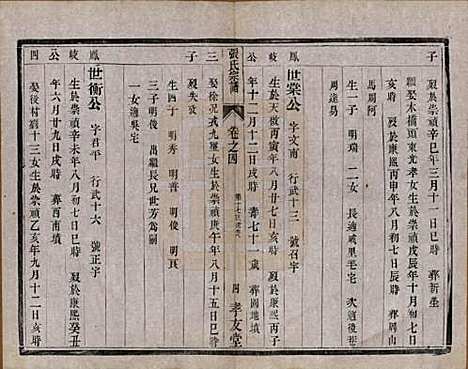 子
殁於崇禎辛巳年三月十一日巳時 葬祈塋
繼娶木橋頭東光孝女生於崇禎戊辰年十月十一日
亥時 殁於康熙丙申年八月初七日辰時 葬周山
馬周阿
生二子 明瑞 二女 長適威里毛宅 次適
周達易
鳳 世棠公 字文南 行武十三 號召宇
岐 生於天啟丙寅年八月廿七日亥時 殁於康熙丙子
公 年十二月十二日戌時 壽七十一歲 葬園地墳
張氏宗譜 卷之四 四 孝友堂
三 娶徐況九華女生於崇禎庚午年八月十五日巳時
子 殁失攷
生四子 明秀 明普 明俊 明真
三子明俊 出繼長兄世芳為嗣
一女適吳宅
鳳 世衡公 字君平 行武十六 號正宇
岐 生於崇禎辛未年八月初七日巳時 殁於康熙癸丑
公 年六月廿九日戌時 葬酉南墳
四 娶後村劉十三女生於崇禎乙亥年九月十二日亥時